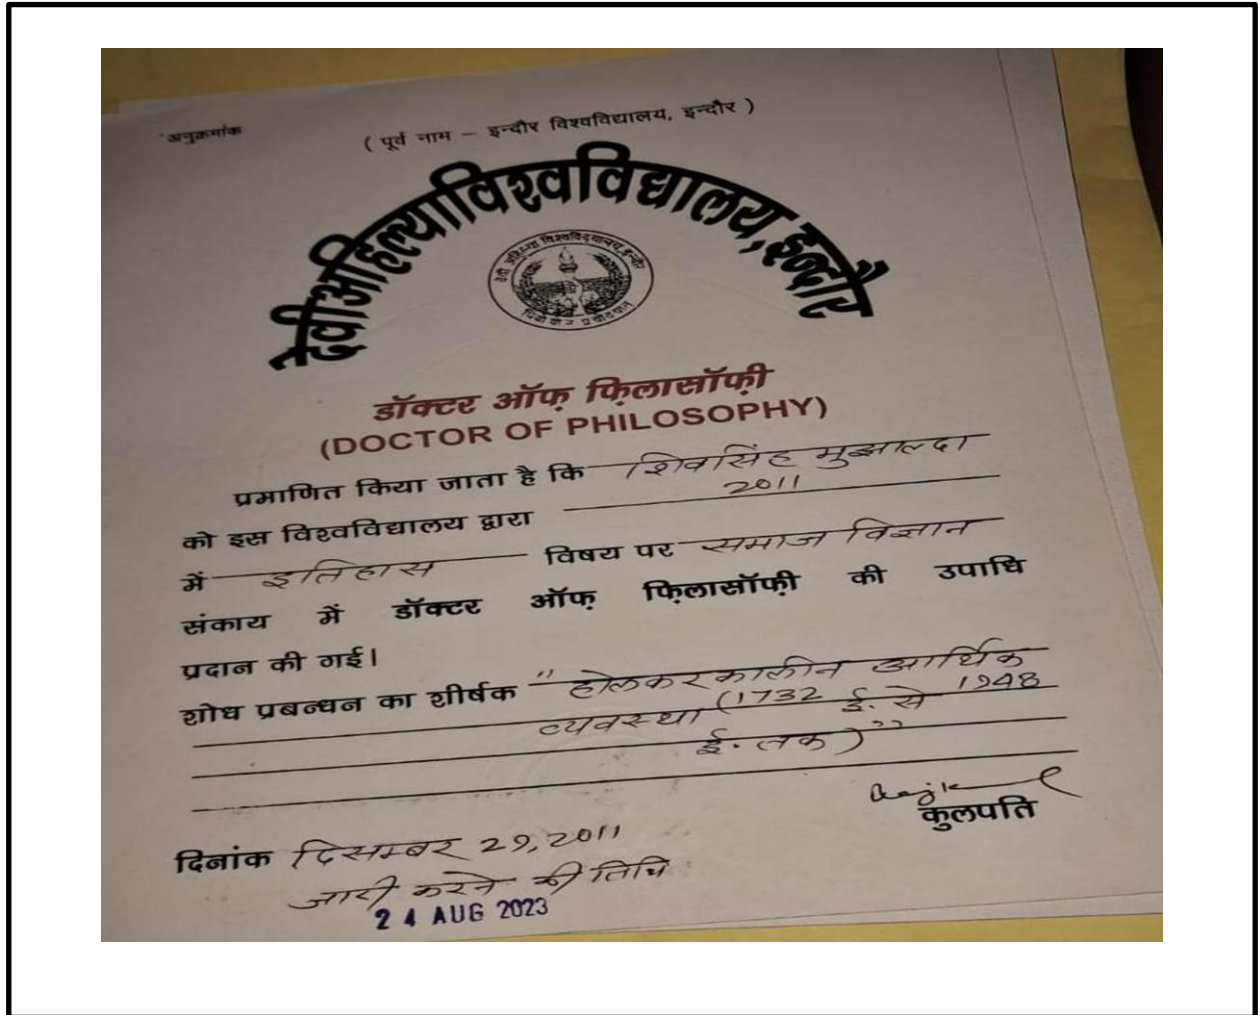 अनुक्रमांक
( पूर्व नाम – इन्दौर विश्वविद्यालय, इन्दौर )
देवी अहिल्या विश्वविद्यालय, इन्दौर
देवी अहिल्या विश्वविद्यालय, इन्दौर
धियो यो नः प्रचोदयात्
डॉक्टर ऑफ़ फ़िलासॉफ़ी
(DOCTOR OF PHILOSOPHY)
प्रमाणित किया जाता है कि शिवसिंह मुझाल्दा
को इस विश्वविद्यालय द्वारा 2011
में इतिहास विषय पर समाज विज्ञान
संकाय में डॉक्टर ऑफ़ फ़िलासॉफ़ी की उपाधि
प्रदान की गई।
शोध प्रबन्धन का शीर्षक "होलकरकालीन आर्थिक
व्यवस्था (1732 ई. से 1948
ई. तक)"
कुलपति
दिनांक दिसम्बर 29, 2011
जारी करने की तिथि
24 AUG 2023